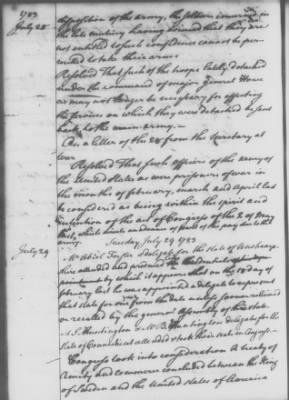 1783
July 28
disposition of the army, the soldiers concerned in
the late mutiny having proved that they are
not entitled to such confidence cannot be per
mitted to take their arms
Resolved That such of the troops lately detached
under the command of major general Howe
as may not longer be necessary for effecting
the service on which they were detached be sent
back to the main army.
On a letter of the 24 from the Secretary at
war
Resolved That such officers of the army of
the United States as were prisoners of war in
the months of february, march and April last
be considered as being within the spirit and
intention of the act of Congress of the 2 of May
army.
July 29
Tuesday, July 29 1783
Mr Abiel Foster a delegate for the State of New hamp
shire attended and produced
by which it appears that on the day of
february last he was appointed a delegate to represent
that state for one from the date unless sooner
or recalled by the general Assembly of the State
Mr S. Huntington & Mr B. Huntington delegates for the
State of Connecticut attended & took their seats in Congress
Congress took into consideration A treaty of
Amity and commerce concluded between the King
of Sweden and the United States of America